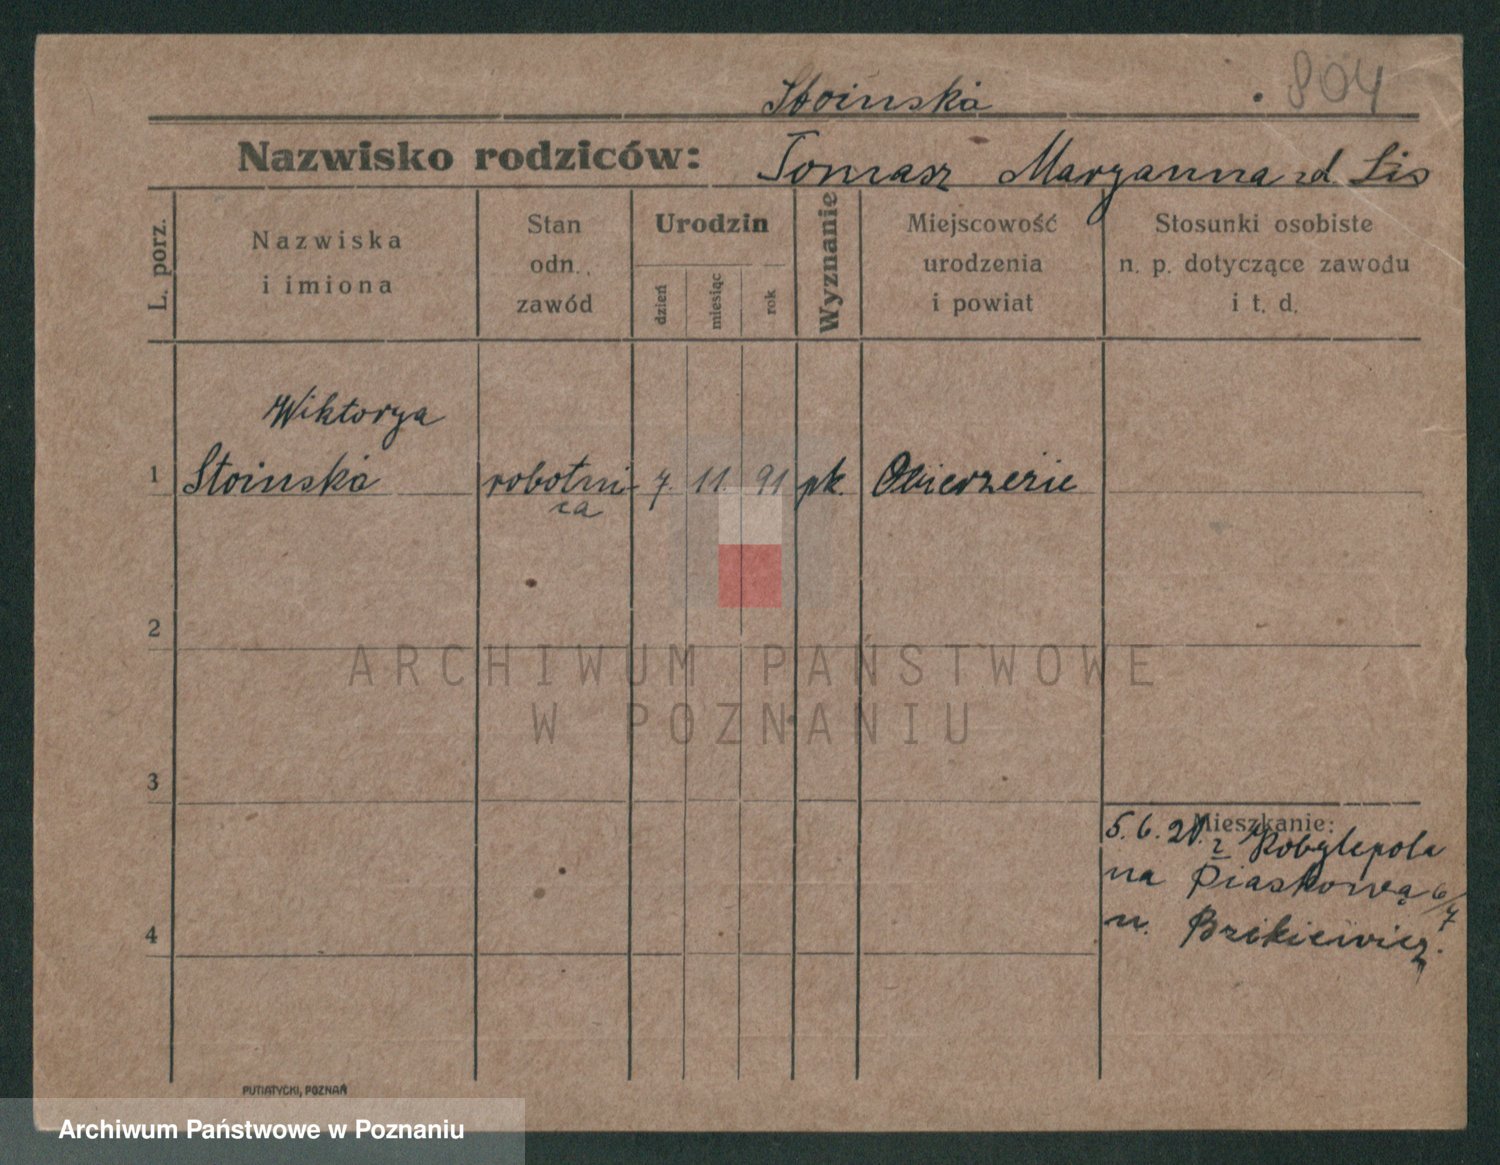 Stoinska . 804
Nazwisko rodziców: Tomasz Maryanna zd Lis
L. porz.
Nazwiska
i imiona
Stan
odn.
zawód
Urodzin
dzień
miesiąc
rok
Wyznanie
Miejscowość
urodzenia
i powiat
Stosunki osobiste
n. p. dotyczące zawodu
i t. d.
Wiktorya
1 Stoinska robotni 7. 11. 91 rk. Obierzerie
ca
2
ARCHIWUM PAŃSTWOWE
W POZNANIU
3
Mieszkanie:
5.6.21. z Kobylepola
na Piaskową 6/7
u. Bzikiewicz.
4
PUTIATYCKI, POZNAŃ
Archiwum Państwowe w Poznaniu